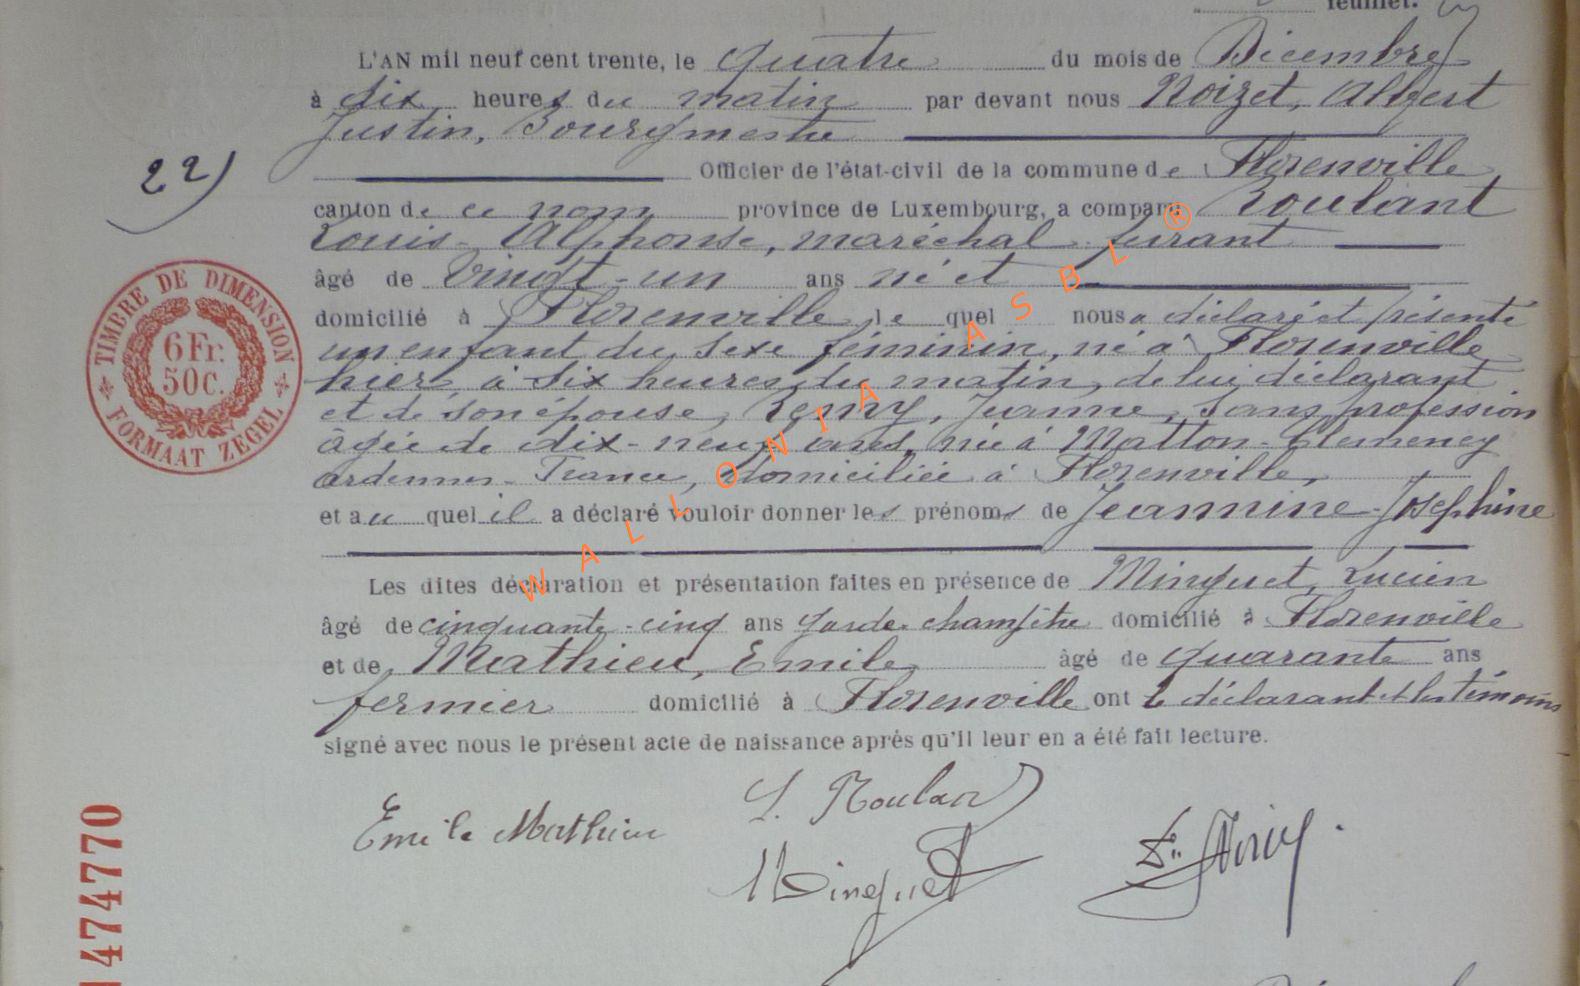 feuillet.
L'AN mil neuf cent trente, le quatre du mois de Décembre
à dix heures du matin par devant nous Noizet, Albert
Justin, Bourgmestre
22)
Officier de l'état-civil de la commune de Florenville
canton de ce nom province de Luxembourg, a comparu Roulant
Louis-Alphonse, maréchal-ferrant
âgé de vingt-un ans né et
domicilié à Florenville lequel nous a déclaré et présenté
un enfant du sexe féminin, né à Florenville
hier, à six heures du matin, de lui déclarant
et de son épouse, Remy, Jeanne, sans profession
âgée de dix-neuf ans, née à Matton-Clemency
ardennes-France, domiciliée à Florenville,
et auquel il a déclaré vouloir donner les prénoms de Jeannine-Josephine
Les dites déclaration et présentation faites en présence de Minguet, Lucien
âgé de cinquante-cinq ans garde-champêtre domicilié à Florenville
et de Mathieu, Emile âgé de quarante ans
fermier domicilié à Florenville ont le déclarant et les témoins
signé avec nous le présent acte de naissance aprés qu'il leur en a été fait lecture.
Emile Mathieu
L. Roulant
Minguet
TIMBRE DE DIMENSION
6 Fr.
50 C.
FORMAAT ZEGEL
474770
WALLONIA ASBL ®